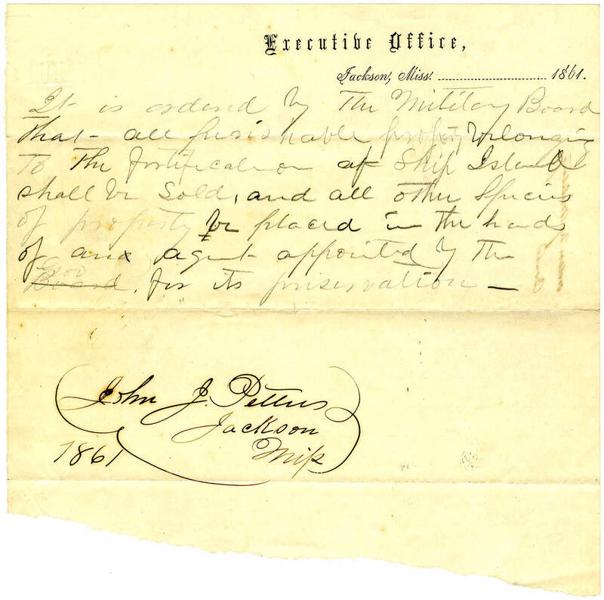 Executive Office,
Jackson, Miss. 1861.
It is ordered by The Military Board
that all perishable property belonging
to the fortification at Ship Island
shall be sold, and all other species
of property be placed in the hands
of an agent appointed by the
Gov
Board, for its preservation —
John J. Pettus
Jackson
1861 Miss